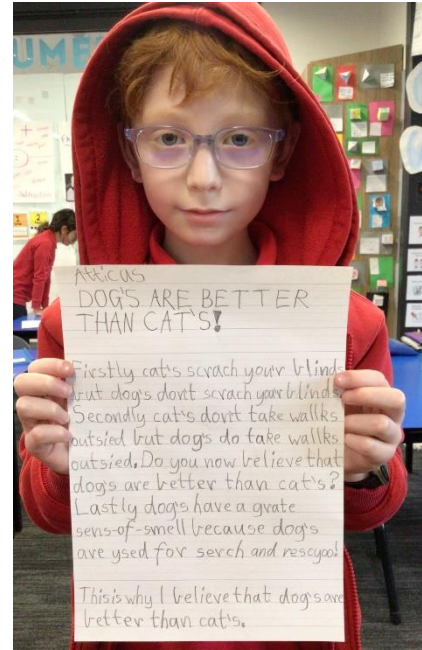 UME
Atticus
DOG'S ARE BETTER
THAN CAT'S!
Firstly cat's scrach your blinds
but dog's dont scrach your blinds.
Secondly cat's dont take wallks
outsied but dog's do take wallks
outsied. Do you now believe that
dog's are better than cat's?
Lastly dog's have a grate
sens-of-smell because dog's
are ysed for serch and rescyoo!
This is why I believe that dog's are
better than cat's.